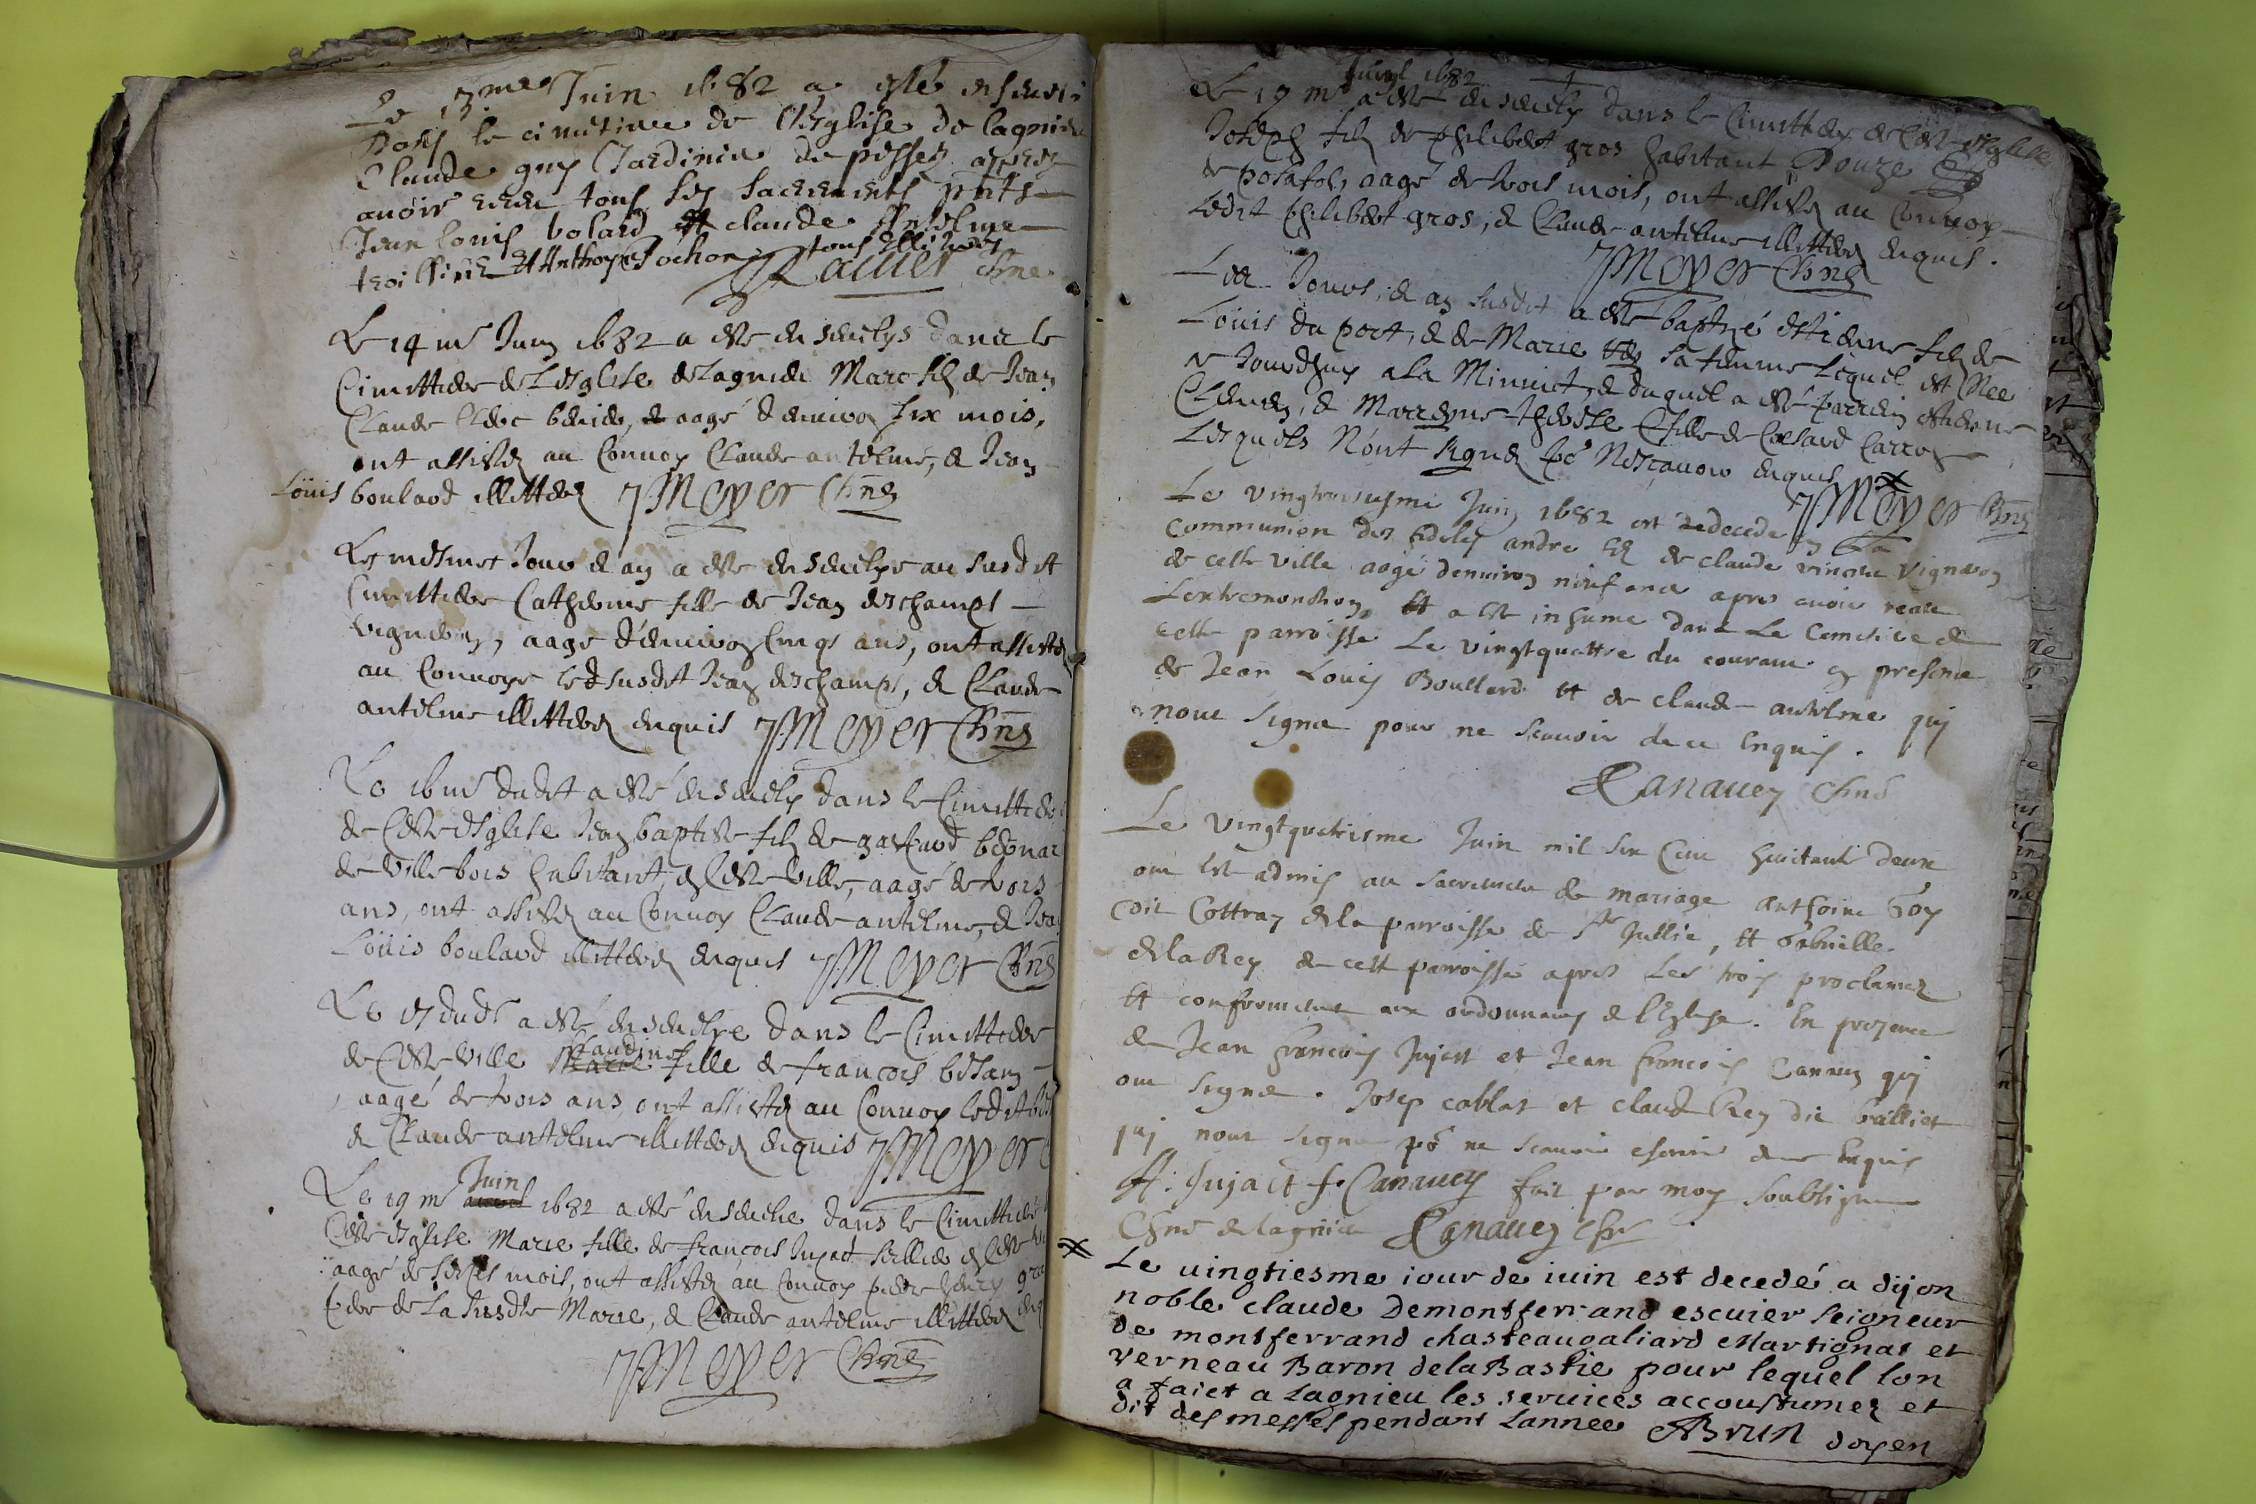 Le 13me Juin 1682 a esté enseueli
dans le cimetiere de l'esglise de lagnieu
Claude guy Jardinier de
auoir receu tous ses sacrements pnts
Jean louis bolard et claude Antelme
troissieme et Anthoyne cochon tous illiteres
Chne
Le 14 me Juin 1682 a este ensevelys dans le
Cimettiere de L'esglise de Lagnieu Marc fils de Jean
Claude aagé denviron six mois,
ont assistez au Convoy Claude antelme, & Jean
Loüis boulard illitterez J Moyer Chne
Le mesmes Jour & an a este ensevelye au susdit
Cimettiere Catherine fille de Jean deschamps
vigneron, aage d'environ Cinqs ans, ont assistez
au Convoye led susdit Jean deschamps, & Claude
antelme illitterez enquis J Moyer Chne
Le 16 me dudit a esté ensevely dans le Cimettiere
de Ceste esglise Jean baptiste fils de
de Villebois habitant en Ceste Ville, aagé de trois
ans, ont assistez au Convoy Claude antelme, & Jean
Loüis boulard illitterez enquis J Moyer Chne
Le 17 dudt a esté ensevelye dans le Cimettiere
Claudine
de Ceste Ville fille de francois
aagé de trois ans, ont assistez au Convoy ledit
& Claude antelme illitterez enquis J Moyer
Juin
Le 19 me 1682 a esté ensevelie dans le Cimettiere
Ceste esglise Marie fille de françois Jujact sellier en Ceste
aagé de mois, ont assistez au Convoy
de La susdte Marie, & Claude antelme illitterez
J Moyer Chne
Juin 1682
Le 19 me a este ensevely dans le Cimettiere de Ceste esglise
Joseph fils de philibert gros habitant
aagé de trois mois, ont assistez au Convoy
Ledit philibert gros, & Claude antelme illitterez enquis.
J Moyer Chne
Jour, & an susdit a esté baptizé estienne fils de
Loüis du port, & de Marie sa femme Lequel est Nee
Jourdhuy a La Minuict, & duquel a esté parrein estienne
& Marreyne fille de Cesard Carron
Lesquels N'ont signez po Nescavoir enquis
J Moyer Chne
Le vingtroisiesme Juin 1682 est decede en la
communion des fideles andre fils de claude vincent Vigneron
de cette Ville aagé denviron neuf ans apres avoir receu
Lextremonction, Et a est inhume dans Le Cimetiere de
cette parroisse Le vingtquattre du courant en presence
de Jean Louis Boullard et de claude antelme qui
nont signe pour ne scavoir de ce Enquis.
Canauey Chne
Le Vingtquatriesme Juin mil six Cent huictante deux
ont Est admis au sacrement de mariage anthoine Goy
dit Cottray de la parroisse de St Jullie, Et Gabrielle
de la Rey de cette parroisse apres Les trois proclames
Et conformement aux ordonnances de l'Eglise. En presence
de Jean françois Jujact et Jean françois Canauey qui
ont signe. Josep et claude Rey dit
qui nont signe po ne scavoir escrire de ce Enquis
Jujact f. Canauey fait par moy soubsigne
Chne de lagnieu Canauey Chne
Le uingtiesme iour de iuin est decedé a dijon
noble claude Demontferrand escuier seigneur
de montferrand chasteaugaliard Martignat et
verneau Baron delaBastie pour lequel lon
a faict a Lagnieu les seruices accoustumez et
dit des messes pendant Lannee ABrun doyen